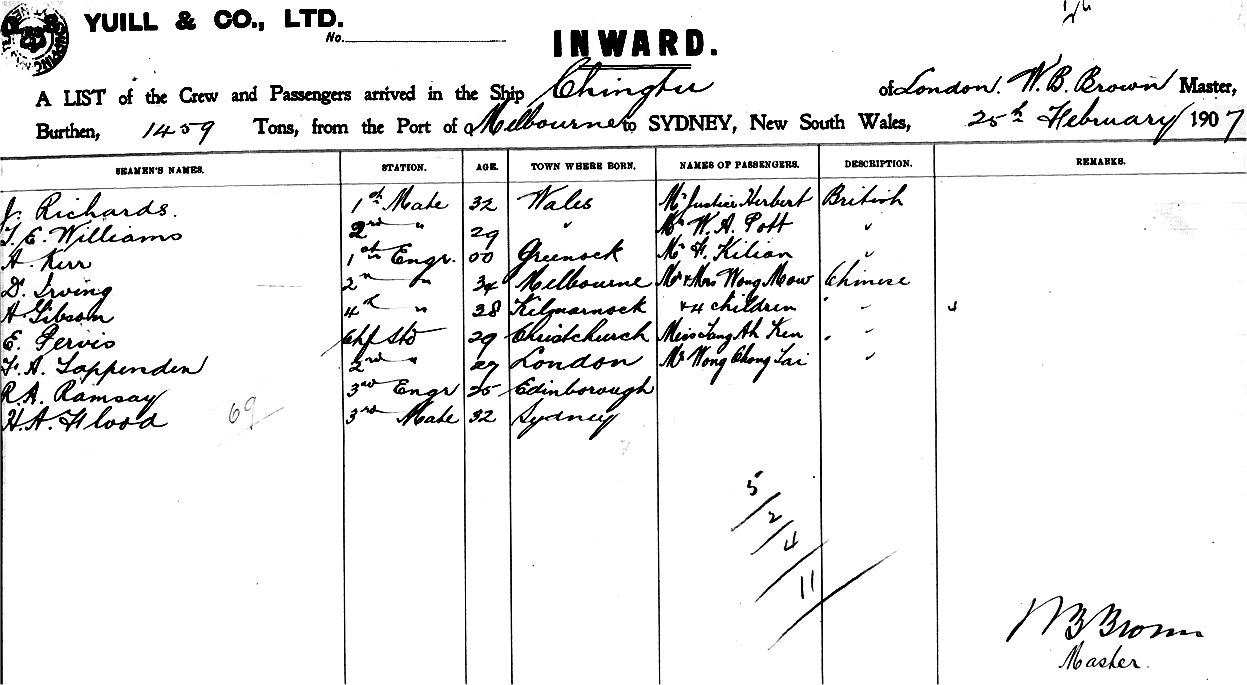 YUILL & CO., LTD.
No.
INWARD.
A LIST of the Crew and Passengers arrived in the Ship Chingtu of London. W. B. Brown Master,
Burthen, 1459 Tons, from the Port of Melbourne to SYDNEY, New South Wales, 25th February 1907
SEAMEN'S NAMES. STATION. AGE. TOWN WHERE BORN. NAMES OF PASSENGERS. DESCRIPTION. REMARKS.
J. Richards. 1st Mate 32 Wales Mr Justice Herbert British
T. E. Williams 2nd " 29 " Mr W. A. Pott "
A. Kerr 1st Engr. 00 Greenock Mr H. Kilian "
D. Irving 2n " 34 Melbourne Mr & Mrs Wong Mow Chinese
A Gibson 4th " 38 Kilmarnock & 4 children " " 4
E. Pervis Chf Std 29 Christchurch Miss Tang Ah Ken " "
F. A. Tappenden 2nd " 27 London Mr Wong Chong Tai "
R. A. Ramsay 3rd Engr 25 Edinborough
H. A. Flood 69 3rd Mate 32 Sydney
5
2
4
11
W B Brown
Master.